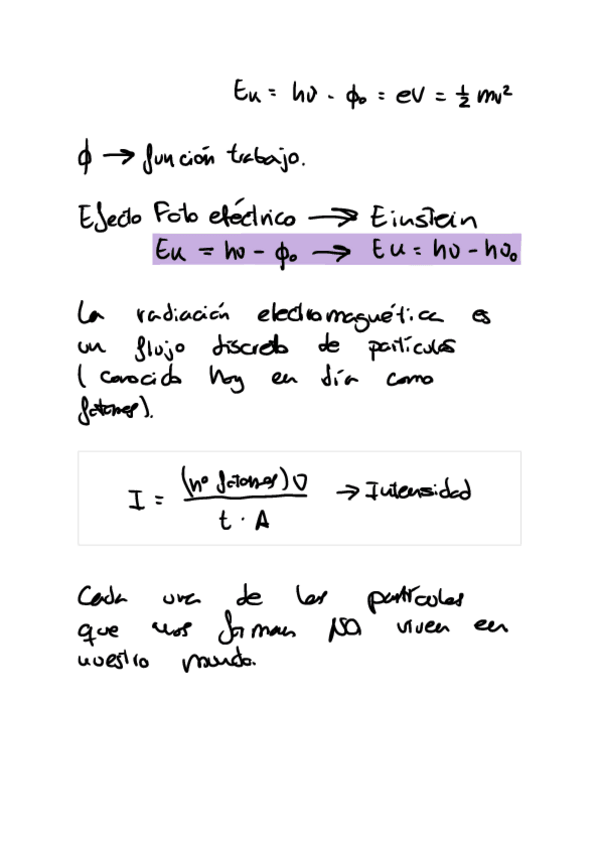 Eₖ = hν - ϕ₀ = eV = ½ mv²
ϕ → función trabajo.
Efecto Fotoeléctrico → Einstein
Eₖ = hν - ϕ₀ → Eₖ = hν - hν₀
La radiación electromagnética es
un flujo discreto de partículas
(conocido hoy en día como
fotones).
I = (nº fotones) ν / t · A → Intensidad
Cada una de las partículas
que nos forman NO viven en
nuestro mundo.